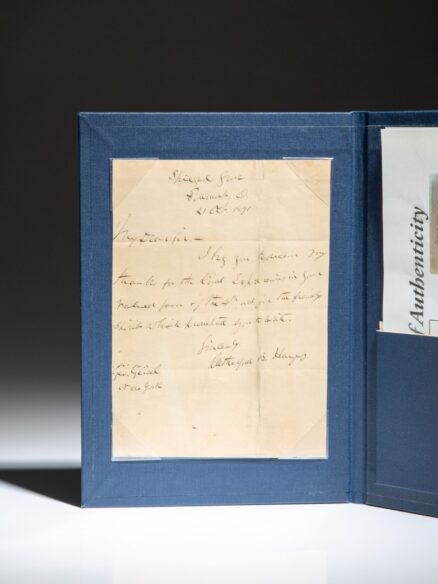 Spiegel Grove
Fremont, O.
21 Oct. 1890
My Dear Sir —
I beg you to receive my
thanks for the kind expressions in your
valued favor of the and for the friendly
spirit which prompted you to write.
Sincerely
Rutherford B. Hayes
New York
f Authenticity